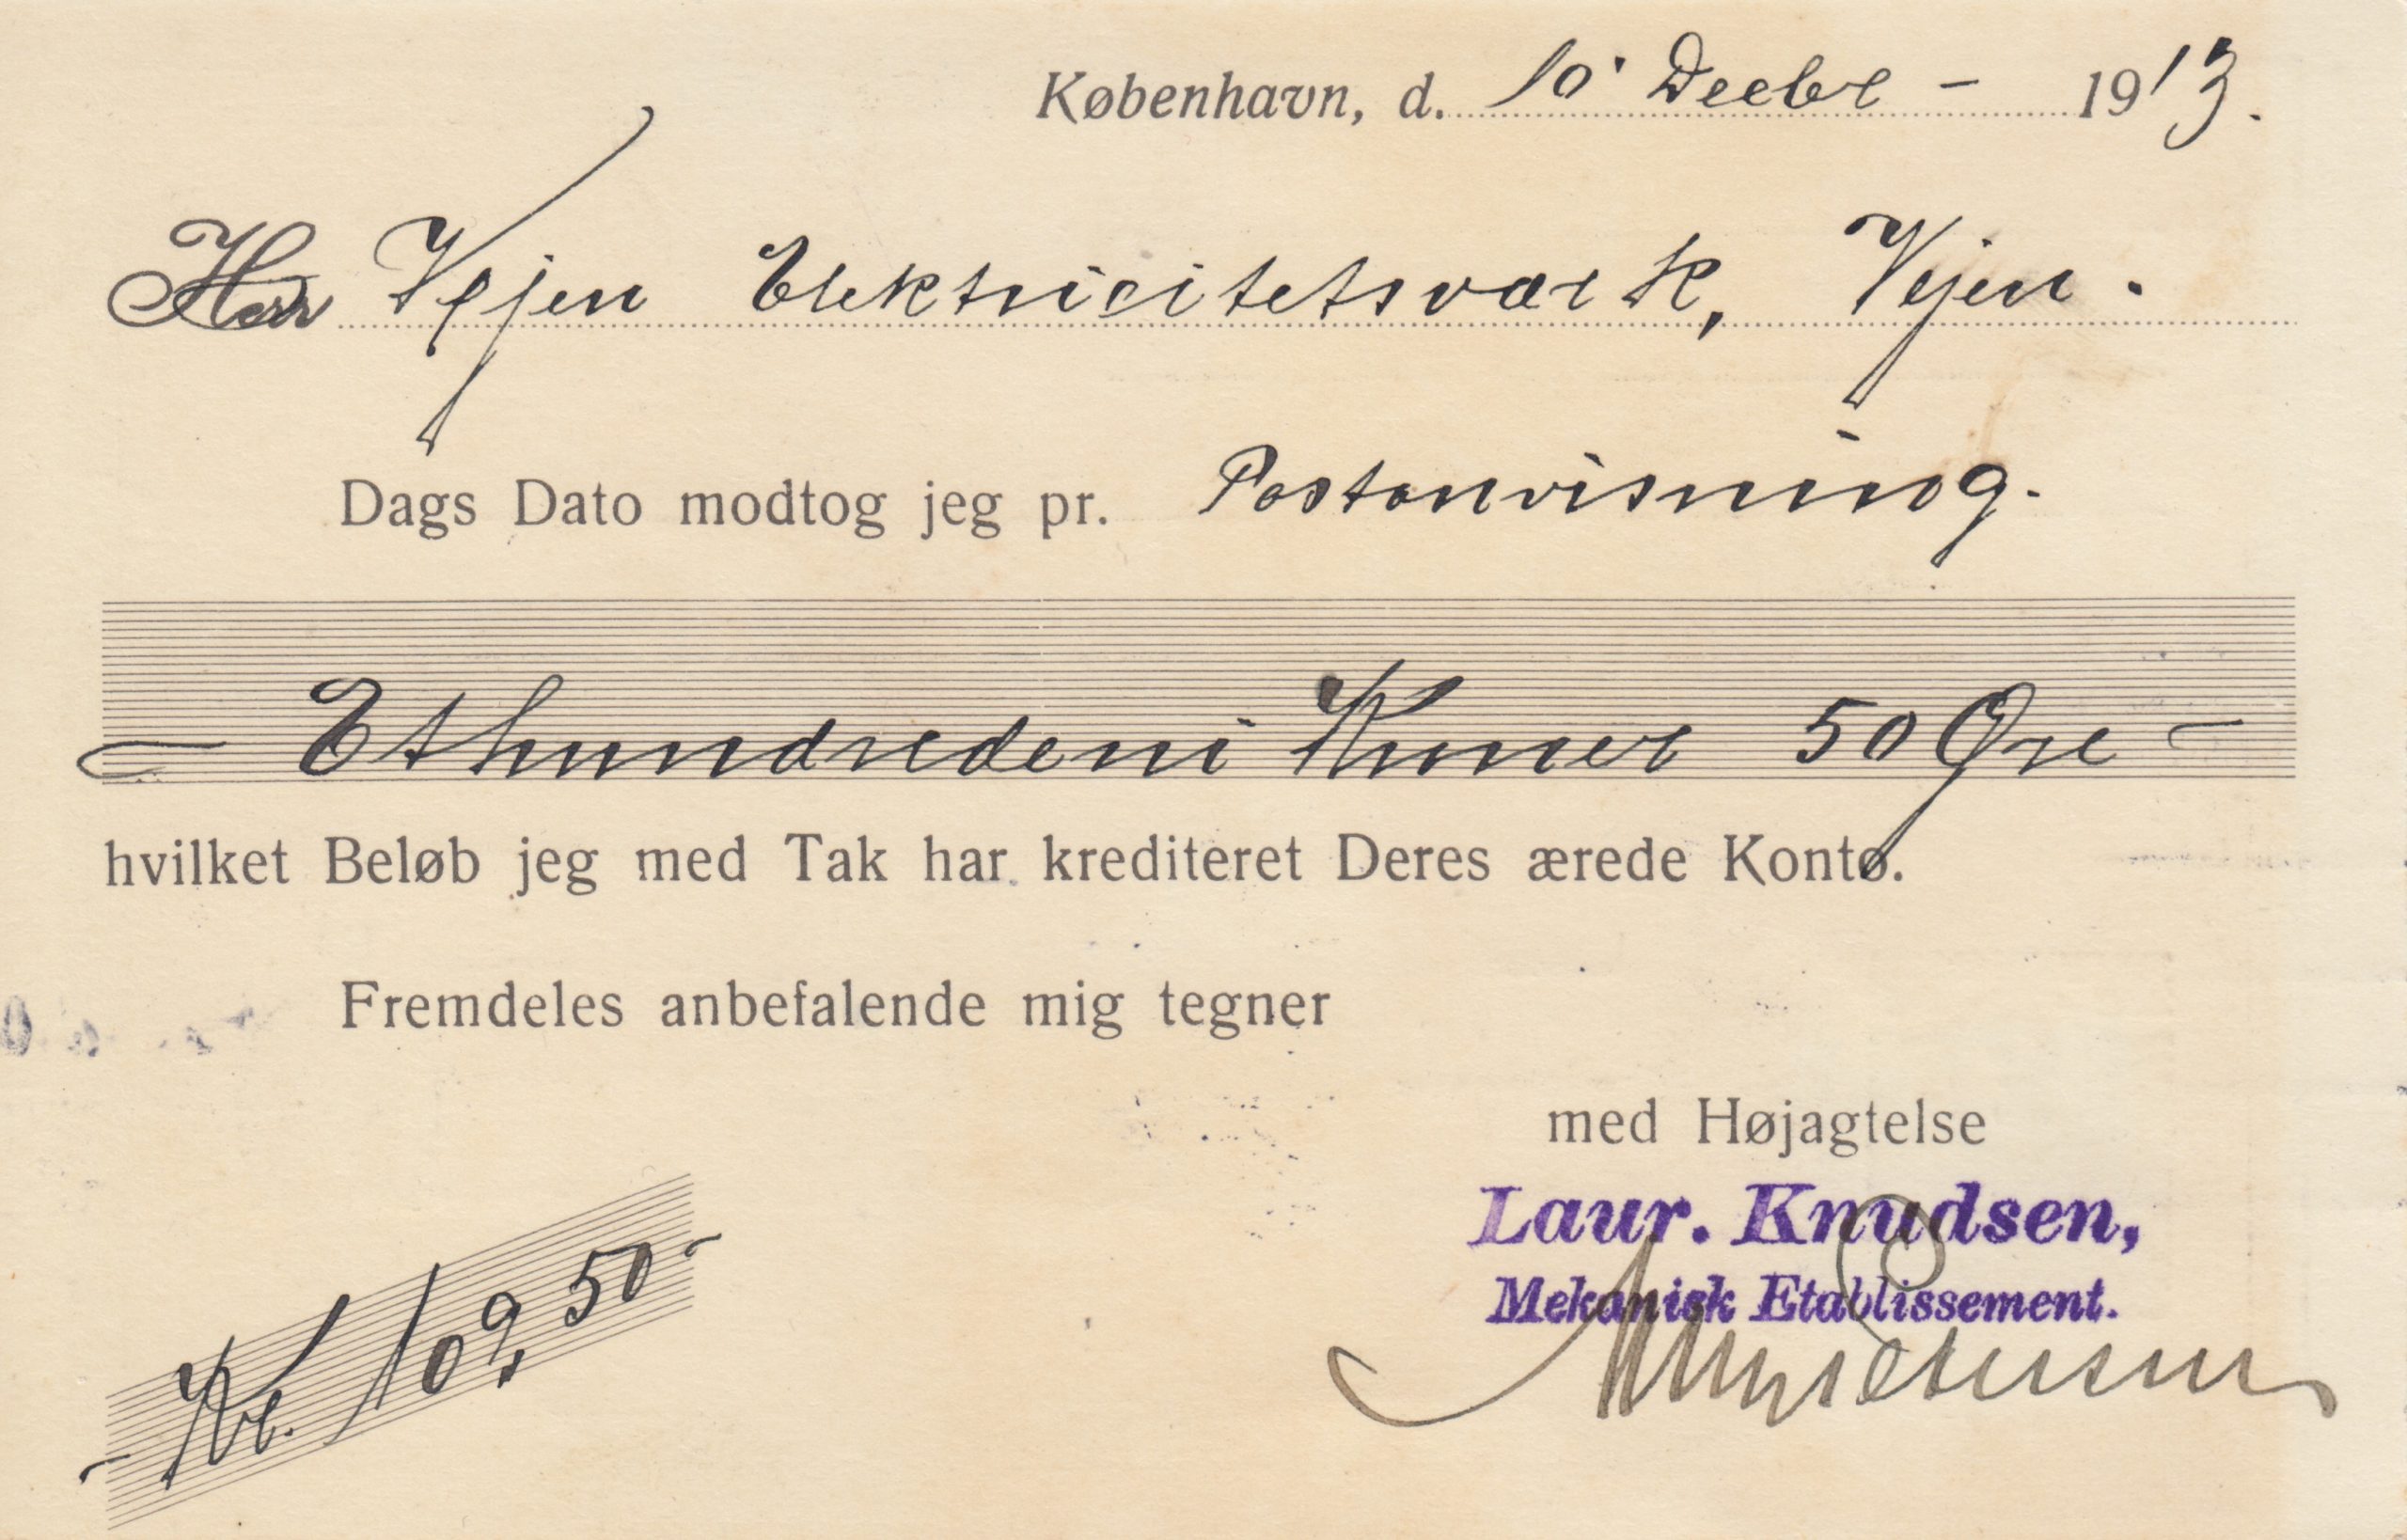 København, d. 10' Decbr - 1913.
Herr Vejen Elektricitetsværk, Vejen.
Dags Dato modtog jeg pr. Postanvisning.
- Ethundredeni Kroner 50 Øre -
hvilket Beløb jeg med Tak har krediteret Deres ærede Konto.
Fremdeles anbefalende mig tegner
med Højagtelse
Laur. Knudsen,
Mekanisk Etablissement.
- Kr. 109,50 -